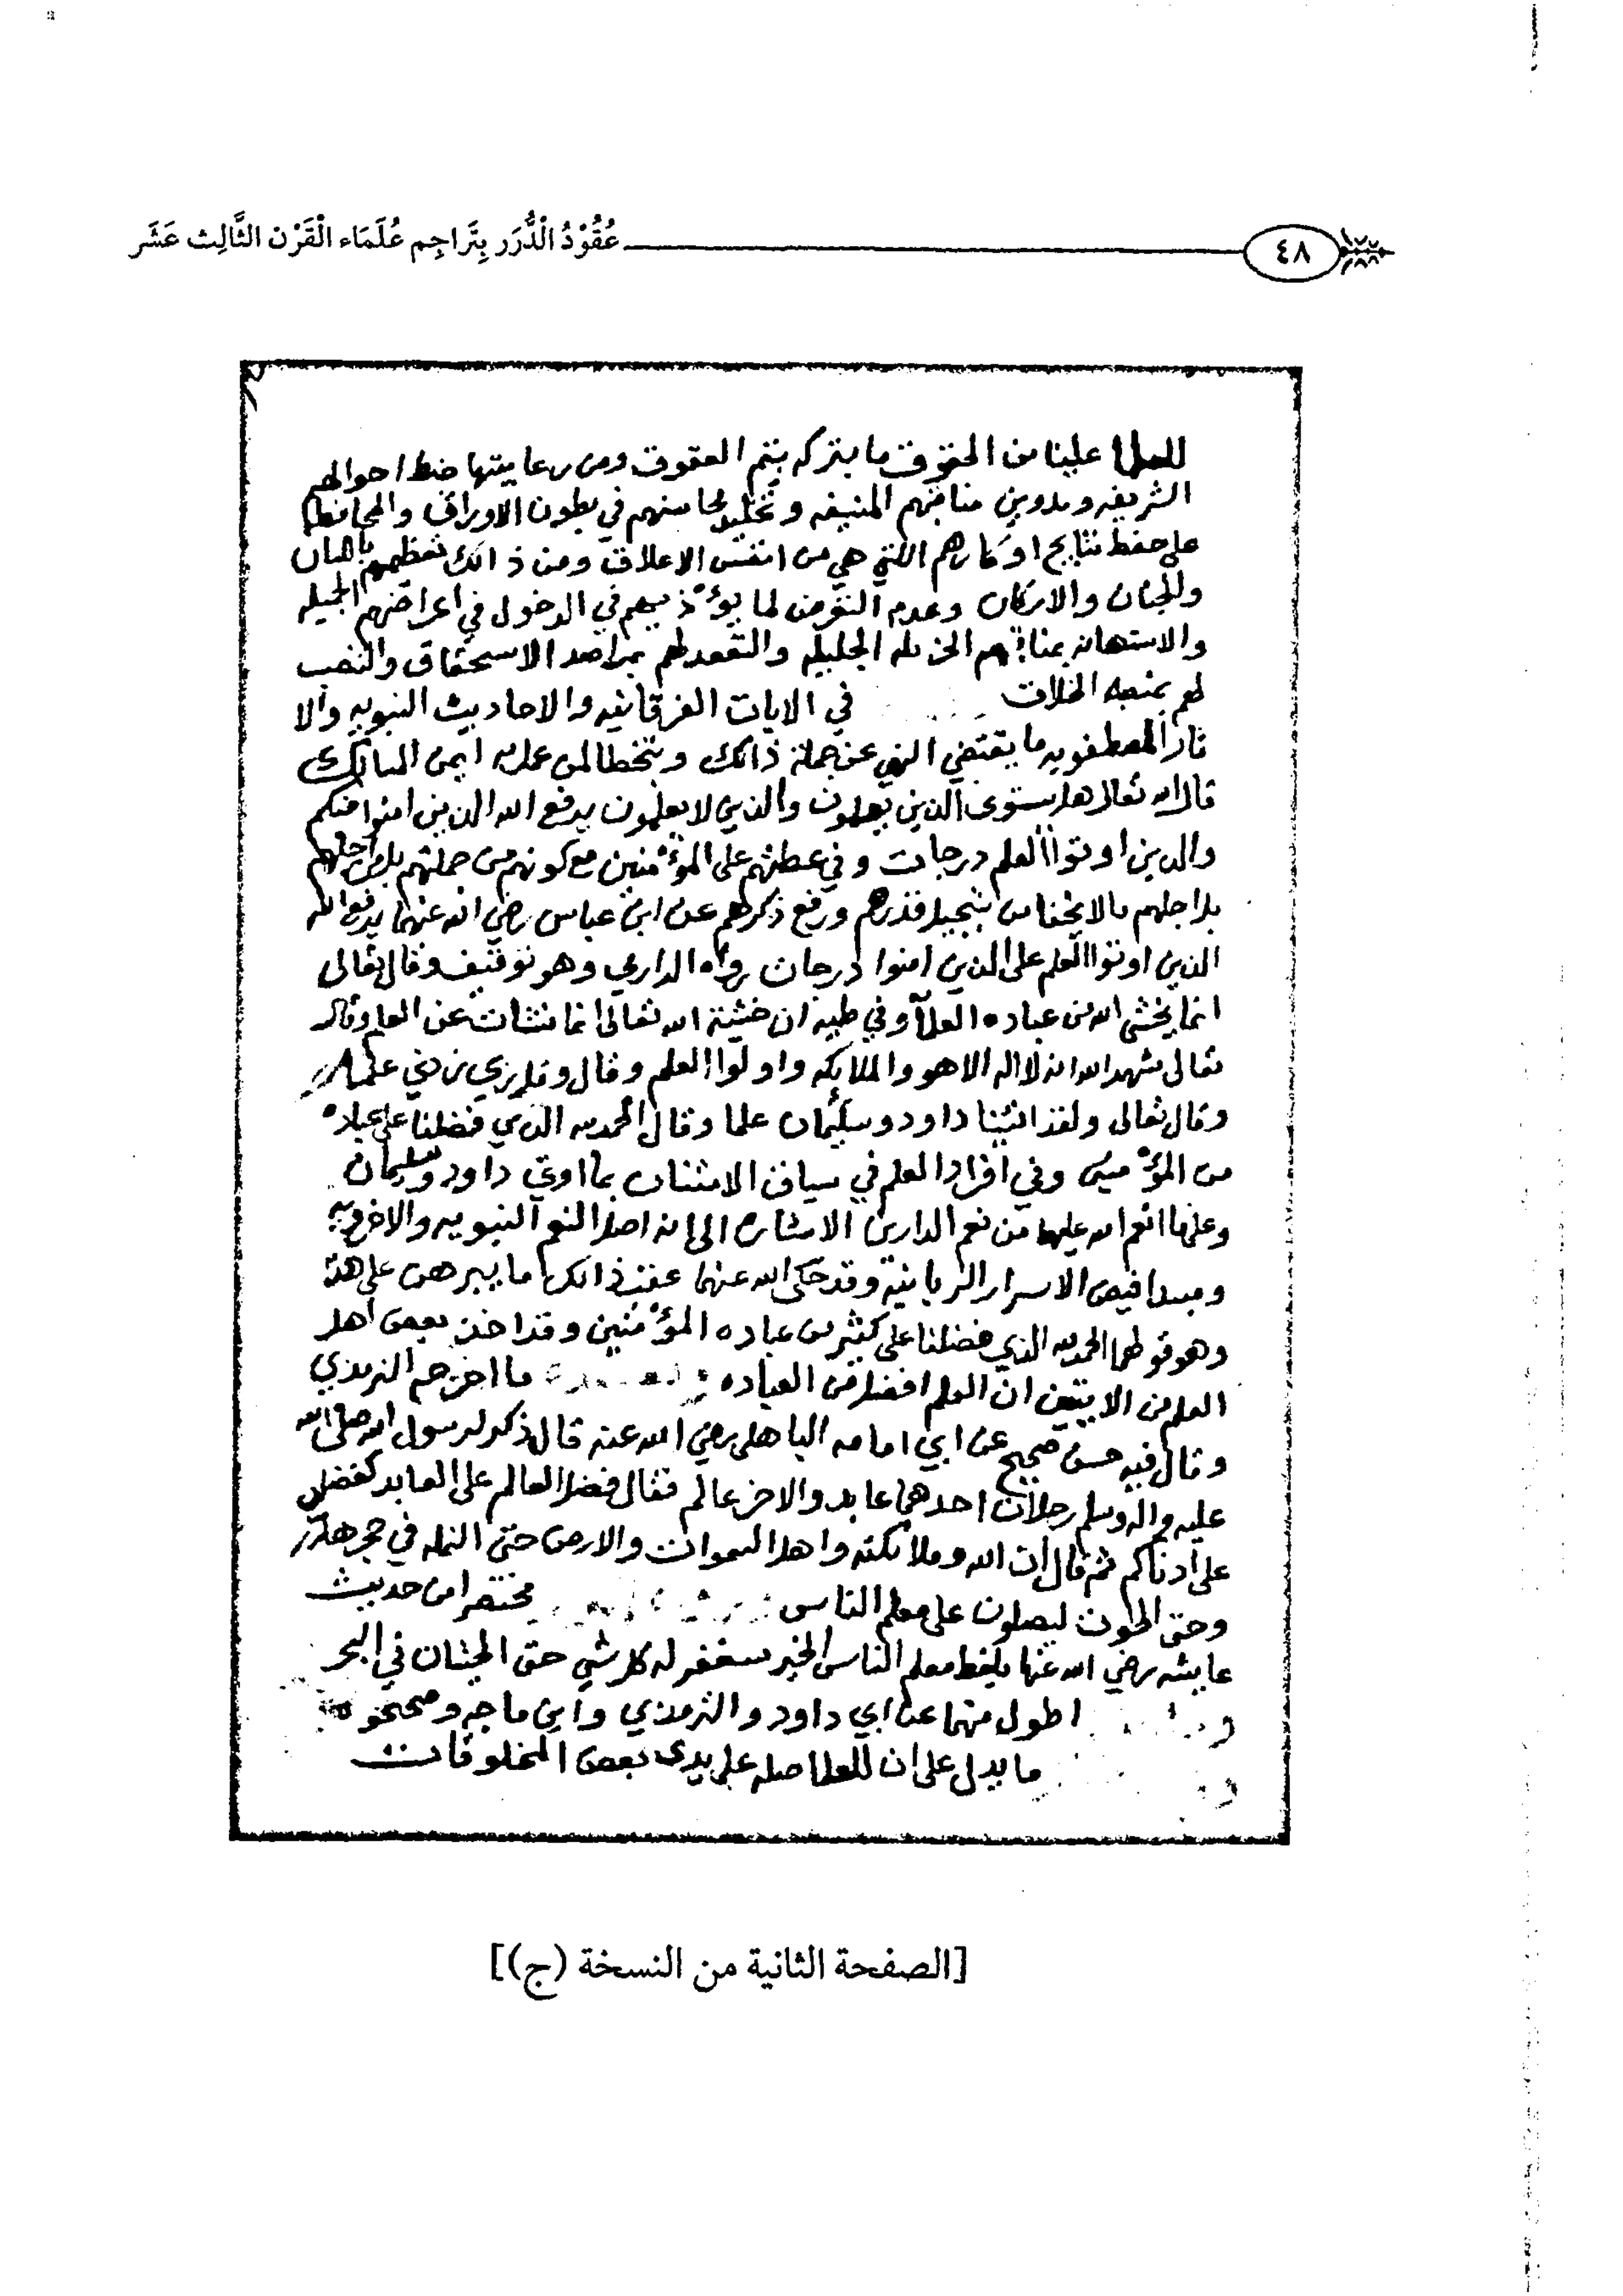 ٤٨ عُقُوْدُ الْدُّرَر بِتَرَاجِم عُلَمَاء الْقَرْن الثَّالِث عَشَر
للعلما علينا من الحقوق ما بتركه يتم العقوق ومن رعايتها ضبط احوالهم
الشريفه وتدوين مناقبهم المنيفه وتخليد محاسنهم في بطون الاوراق والمحافظه
على حفظ نتايج افكارهم اللتي هي من انفس الاعلاق ومن ذالك تعظيمهم باللسان
والجنان والاركان وعدم التعرض لما يؤذيهم في الدخول في اعراضهم الجميله
والاستهانه بمناقبهم الجزيله الجليله والتقعد لهم بمراصد الاستحقاق والنصب
لهم بمنصه الخلاف في الايات الفرقانيه والاحاديث النبويه والا
ثار المصطفويه ما يقتضي النهي عن جملة ذالك وتخطا لمن عمله ايمن المسالك
قال الله تعالى هل يستوى الذين يعلمون والذين لا يعلمون يرفع الله الذين امنوا منكم
والذين اوتوا العلم درجات وفي عطفهم على المؤمنين مع كونهم من جملتهم بل من اجلهم
بل اجلهم بتبجيل قدرهم ورفع ذكرهم عن ابن عباس رضي الله عنهما يرفع الله
الذين اوتوا العلم على الذين امنوا درجات رواه الدارمي وهو توقيف وقال تعالى
انما يخشى الله من عباده العلمآ وفي طيه ان خشية الله تعالى انما نشات عن العلم وقال
تعالى شهد الله انه لا اله الا هو والملايكه واولوا العلم وقال وقل رب زدني علما
وقال تعالى ولقد اتينا داود وسليمان علما وقال الحمد لله الذي فضلنا على عباده
من المؤمنين وفي افراد العلم في سياق الامتنان بما اوتي داود وسليمان
وعلى ما انعم الله عليهما من نعم الدارين الاشاره الى انه اصل النعم النبويه والاخرويه
ومبدا فيض الاسرار الربانية وقد حكى الله عنهما عقب ذالك ما يبرهن على هذ
وهو قولهما الحمد لله الذي فضلنا على كثير من عباده المؤمنين وقد اخذ بعض اهل
العلم من الايتين ان العلم افضل من العباده ما اخرجه الترمذي
وقال فيه حسن صحيح عن ابي امامه الباهلي رضي الله عنه قال ذكر لرسول الله صلى الله
عليه واله وسلم رجلان احدهما عابد والاخر عالم فقال فضل العالم على العابد كفضلي
على ادناكم ثم قال ان الله وملائكته واهل السموات والارض حتى النمله في جحرها
وحتى الحوت ليصلون على معلم الناس مختصرا من حديث
عايشه رضي الله عنها بلفظ معلم الناس الخير يستغفر له كل شي حتى الحيتان في البحر
اطول منهما عن ابي داود والترمذي وابن ماجه وصححوه
ما يدل على ان للعلما صله على يدى بعض المخلوقات
[الصفحة الثانية من النسخة (ج)]